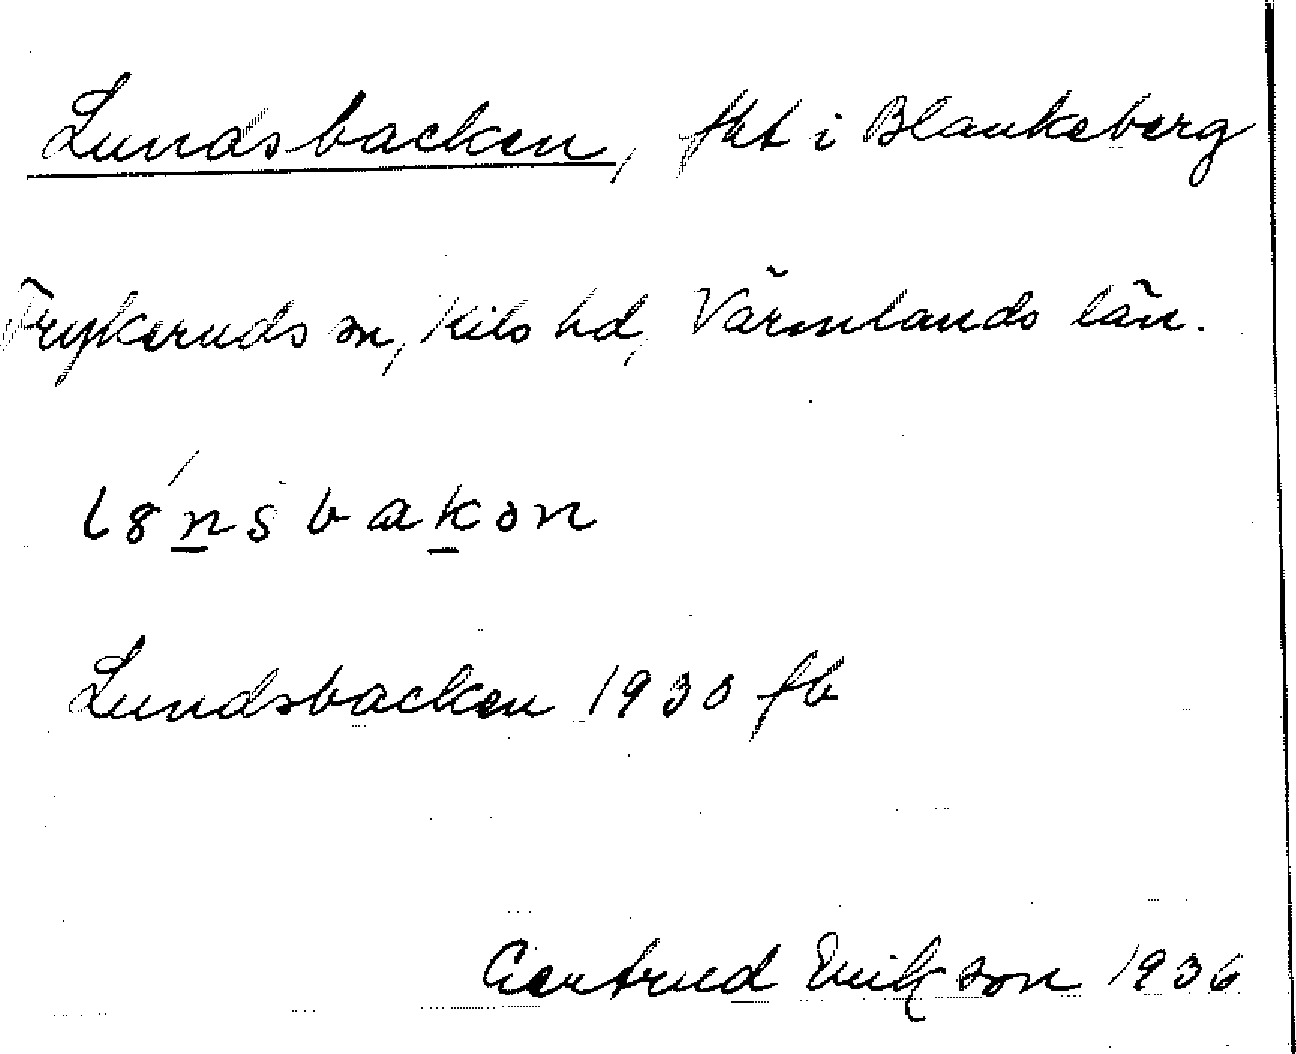 Lundsbacken, fkt i Blankeberg
Frykeruds sn, Kils hd, Värmlands län.
l8́nsbakən
Lundsbacken 1930 fb
Gertrud Erikson 1936